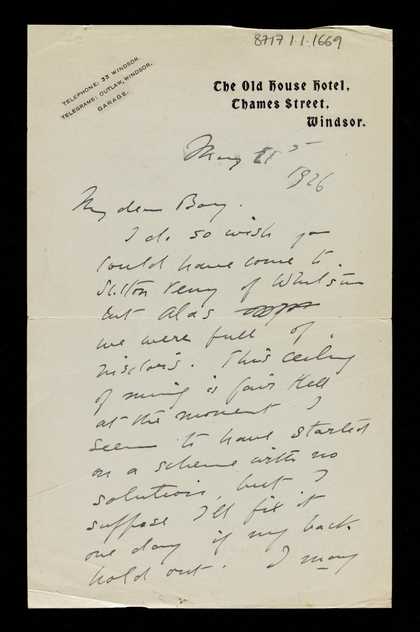 8717.1.1.1669
TELEPHONE: 33 WINDSOR.
TELEGRAMS: OUTLAW, WINDSOR.
GARAGE.
The Old House Hotel,
Thames Street,
Windsor.
May 5
1926
My dear Boy.
I do so wish you
could have come to
Sutton Veny of Whitsun
but Alas
we were full of
visitors. This ceiling
of mine is fair Hell
at the moment I
seem to have started
on a scheme with no
solution, but I
suppose I'll fix it
one day if my back
hold out. I may